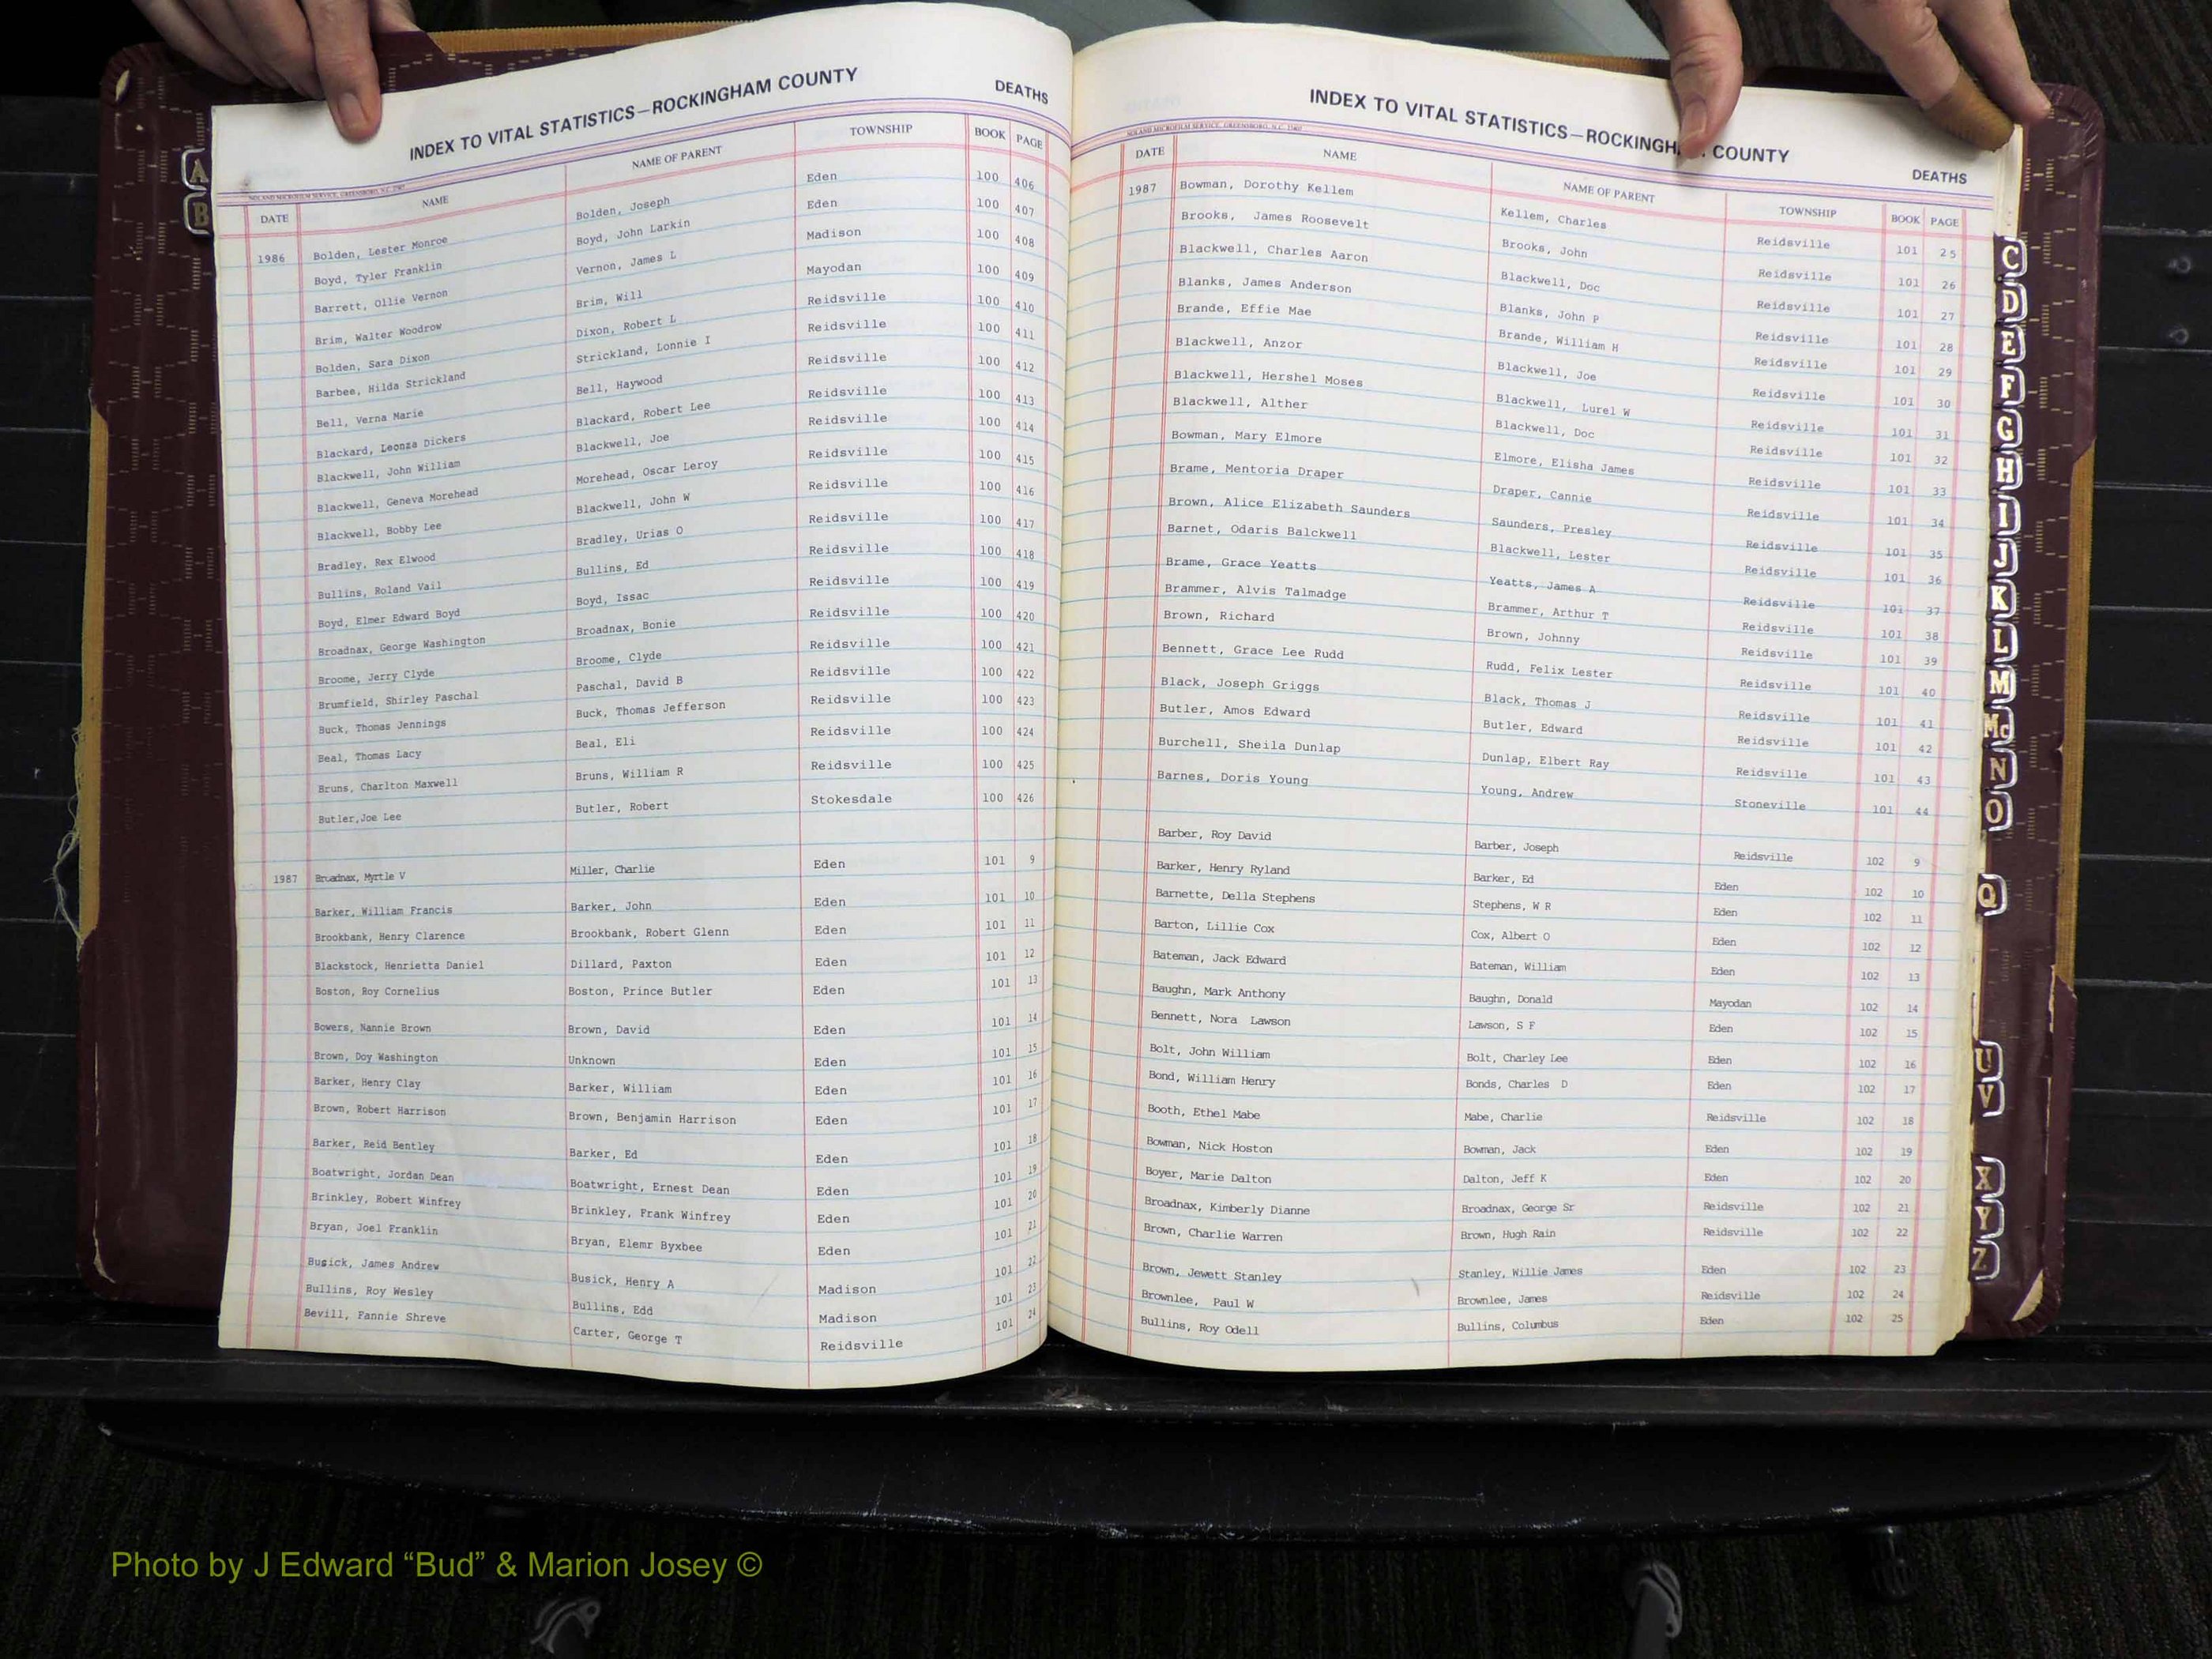 INDEX TO VITAL STATISTICS—ROCKINGHAM COUNTY DEATHS
NOLAND MICROFILM SERVICE, GREENSBORO, N.C.
DATE NAME NAME OF PARENT TOWNSHIP BOOK PAGE
1986 Bolden, Lester Monroe Bolden, Joseph Eden 100 406
Boyd, Tyler Franklin Boyd, John Larkin Eden 100 407
Barrett, Ollie Vernon Vernon, James L Madison 100 408
Brim, Walter Woodrow Brim, Will Mayodan 100 409
Bolden, Sara Dixon Dixon, Robert L Reidsville 100 410
Barbee, Hilda Strickland Strickland, Lonnie I Reidsville 100 411
Bell, Verna Marie Bell, Haywood Reidsville 100 412
Blackard, Leonza Dickers Blackard, Robert Lee Reidsville 100 413
Blackwell, John William Blackwell, Joe Reidsville 100 414
Blackwell, Geneva Morehead Morehead, Oscar Leroy Reidsville 100 415
Blackwell, Bobby Lee Blackwell, John W Reidsville 100 416
Bradley, Rex Elwood Bradley, Urias O Reidsville 100 417
Bullins, Roland Vail Bullins, Ed Reidsville 100 418
Boyd, Elmer Edward Boyd Boyd, Issac Reidsville 100 419
Broadnax, George Washington Broadnax, Bonie Reidsville 100 420
Broome, Jerry Clyde Broome, Clyde Reidsville 100 421
Brumfield, Shirley Paschal Paschal, David B Reidsville 100 422
Buck, Thomas Jennings Buck, Thomas Jefferson Reidsville 100 423
Beal, Thomas Lacy Beal, Eli Reidsville 100 424
Bruns, Charlton Maxwell Bruns, William R Reidsville 100 425
Butler,Joe Lee Butler, Robert Stokesdale 100 426
1987 Broadnax, Myrtle V Miller, Charlie Eden 101 9
Barker, William Francis Barker, John Eden 101 10
Brookbank, Henry Clarence Brookbank, Robert Glenn Eden 101 11
Blackstock, Henrietta Daniel Dillard, Paxton Eden 101 12
Boston, Roy Cornelius Boston, Prince Butler Eden 101 13
Bowers, Nannie Brown Brown, David Eden 101 14
Brown, Doy Washington Unknown Eden 101 15
Barker, Henry Clay Barker, William Eden 101 16
Brown, Robert Harrison Brown, Benjamin Harrison Eden 101 17
Barker, Reid Bentley Barker, Ed Eden 101 18
Boatwright, Jordan Dean Boatwright, Ernest Dean Eden 101 19
Brinkley, Robert Winfrey Brinkley, Frank Winfrey Eden 101 20
Bryan, Joel Franklin Bryan, Elemr Byxbee Eden 101 21
Busick, James Andrew Busick, Henry A Madison 101 22
Bullins, Roy Wesley Bullins, Edd Madison 101 23
Bevill, Fannie Shreve Carter, George T Reidsville 101 24
INDEX TO VITAL STATISTICS—ROCKINGH COUNTY DEATHS
NOLAND MICROFILM SERVICE, GREENSBORO, N.C.
DATE NAME NAME OF PARENT TOWNSHIP BOOK PAGE
1987 Bowman, Dorothy Kellem Kellem, Charles Reidsville 101 25
Brooks, James Roosevelt Brooks, John Reidsville 101 26
Blackwell, Charles Aaron Blackwell, Doc Reidsville 101 27
Blanks, James Anderson Blanks, John P Reidsville 101 28
Brande, Effie Mae Brande, William H Reidsville 101 29
Blackwell, Anzor Blackwell, Joe Reidsville 101 30
Blackwell, Hershel Moses Blackwell, Lurel W Reidsville 101 31
Blackwell, Alther Blackwell, Doc Reidsville 101 32
Bowman, Mary Elmore Elmore, Elisha James Reidsville 101 33
Brame, Mentoria Draper Draper, Cannie Reidsville 101 34
Brown, Alice Elizabeth Saunders Saunders, Presley Reidsville 101 35
Barnet, Odaris Balckwell Blackwell, Lester Reidsville 101 36
Brame, Grace Yeatts Yeatts, James A Reidsville 101 37
Brammer, Alvis Talmadge Brammer, Arthur T Reidsville 101 38
Brown, Richard Brown, Johnny Reidsville 101 39
Bennett, Grace Lee Rudd Rudd, Felix Lester Reidsville 101 40
Black, Joseph Griggs Black, Thomas J Reidsville 101 41
Butler, Amos Edward Butler, Edward Reidsville 101 42
Burchell, Sheila Dunlap Dunlap, Elbert Ray Reidsville 101 43
Barnes, Doris Young Young, Andrew Stoneville 101 44
Barber, Roy David Barber, Joseph Reidsville 102 9
Barker, Henry Ryland Barker, Ed Eden 102 10
Barnette, Della Stephens Stephens, W R Eden 102 11
Barton, Lillie Cox Cox, Albert O Eden 102 12
Bateman, Jack Edward Bateman, William Eden 102 13
Baughn, Mark Anthony Baughn, Donald Mayodan 102 14
Bennett, Nora Lawson Lawson, S F Eden 102 15
Bolt, John William Bolt, Charley Lee Eden 102 16
Bond, William Henry Bonds, Charles D Eden 102 17
Booth, Ethel Mabe Mabe, Charlie Reidsville 102 18
Bowman, Nick Hoston Bowman, Jack Eden 102 19
Boyer, Marie Dalton Dalton, Jeff K Eden 102 20
Broadnax, Kimberly Dianne Broadnax, George Sr Reidsville 102 21
Brown, Charlie Warren Brown, Hugh Rain Reidsville 102 22
Brown, Jewett Stanley Stanley, Willie James Eden 102 23
Brownlee, Paul W Brownlee, James Reidsville 102 24
Bullins, Roy Odell Bullins, Columbus Eden 102 25
A
B
C
D
E
F
G
H
I
J
K
L
M
Mc
N
O
Q
U
V
X
Y
Z
Photo by J Edward “Bud” & Marion Josey ©